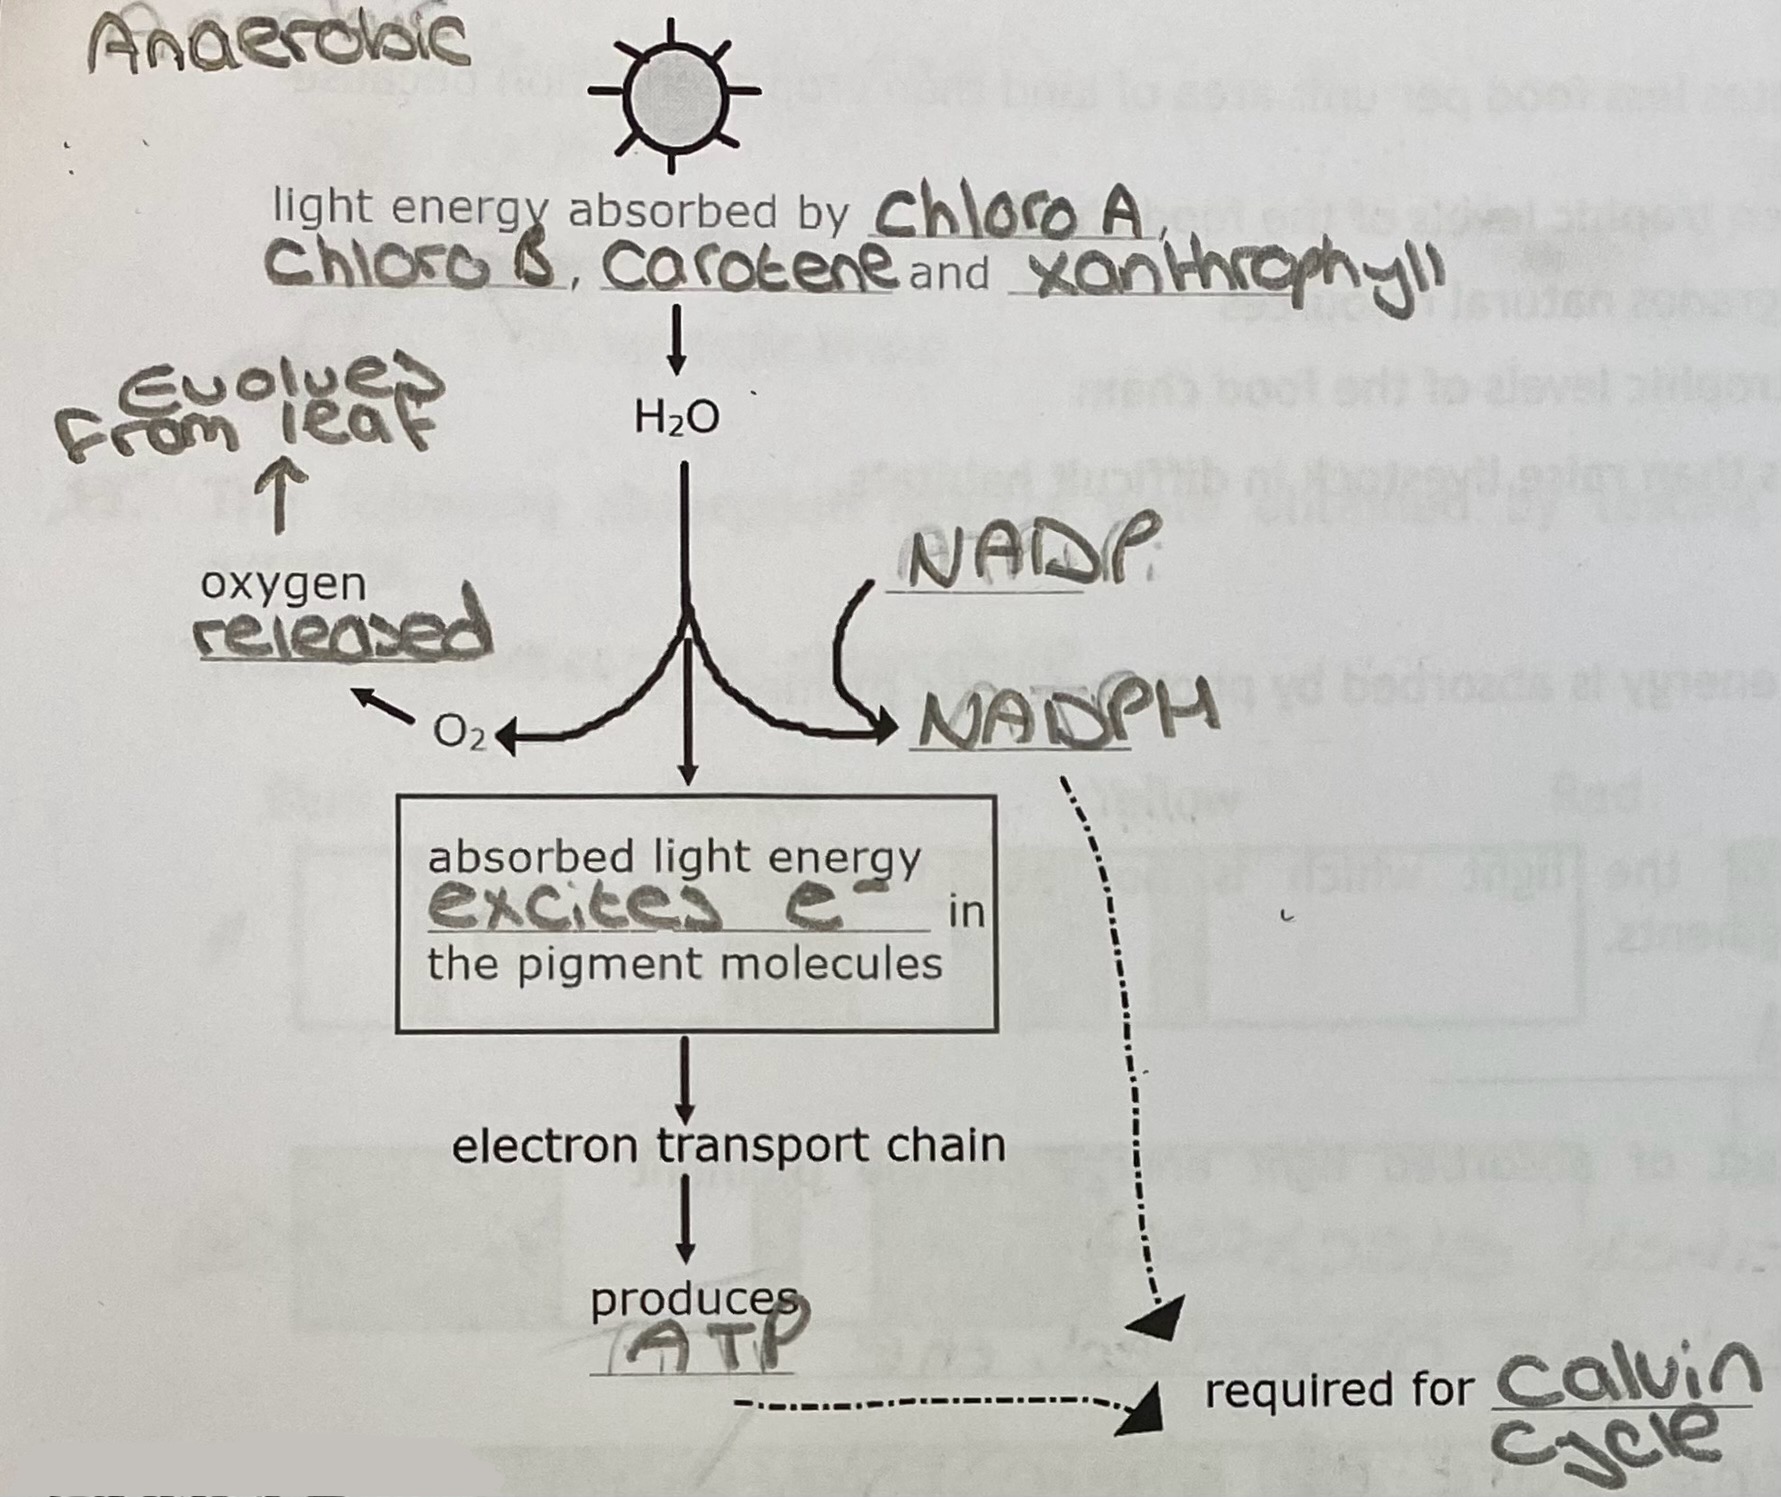 Anaerobic
light energy absorbed by Chloro A,
Chloro B, Carotene and xanthrophyll
Evolves
From leaf
H₂O
NADP
oxygen
released
NADPH
O₂
absorbed light energy
excites e⁻ in
the pigment molecules
electron transport chain
produces
ATP
required for Calvin
Cycle